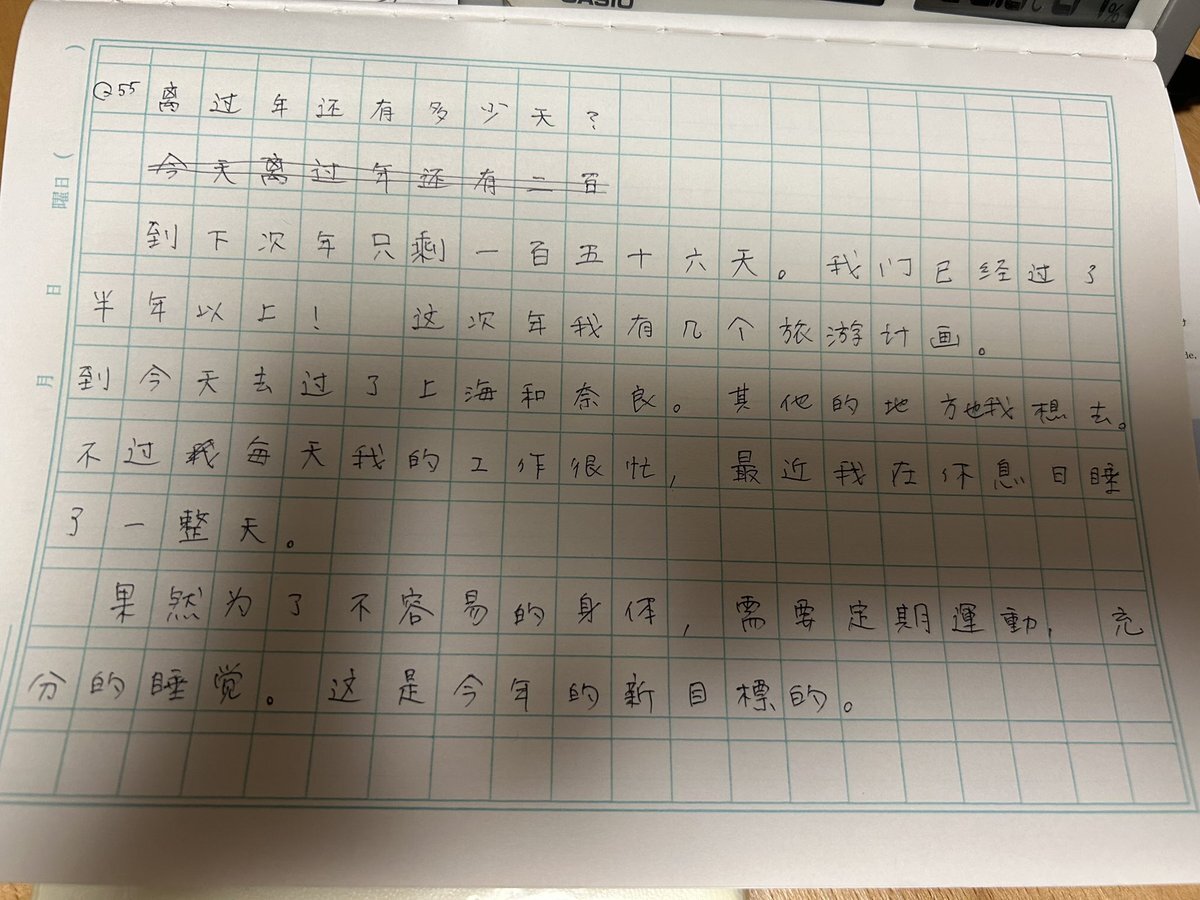 CASIO
%
Q55 离过年还有多少天?
今天离过年还有二百
到下次年只剩一百五十六天。我们已经过了
半年以上! 这次年我有几个旅游计画。
到今天去过了上海和奈良。其他的地方也我想去。
不过我每天我的工作很忙, 最近我在休息日睡
了一整天。
果然为了不容易的身体, 需要定期運動, 充
分的睡觉。这是今年的新目標的。
曜日(
日
月